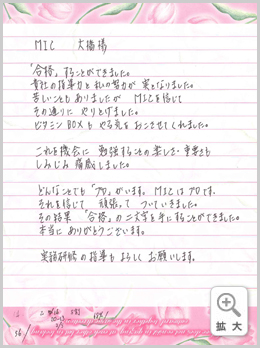 MIC 大橋様
「合格」することができました。
貴社の指導力と私の努力が実となりました。
苦しいこともありましたが MICを信じて
その通りに やりとげました。
ビタミンBOXも やる気を おこさせてくれました。
これを機会に 勉強することの楽しさ・重要さも
しみじみ 痛感しました。
どんなことでも「プロ」がいます。MICはプロです。
それを信じて 頑張って ついていきました。
その結果 「合格」の二文字を手にすることができました。
本当に ありがとうございます。
実務研修の指導も よろしく お願いします。
拡大